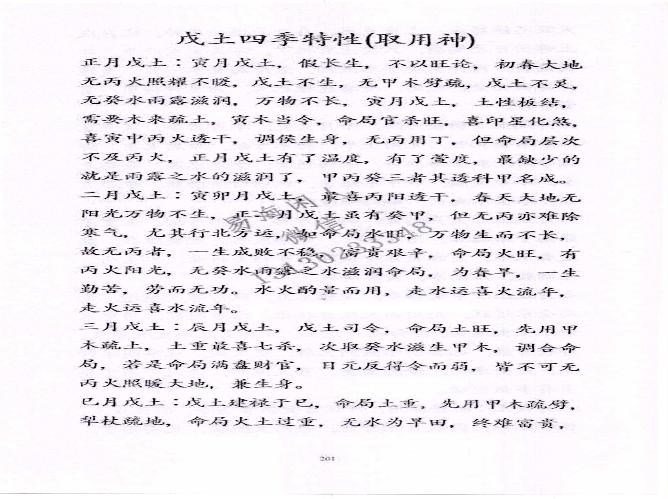 戊土四季特性(取用神)
正月戊土：寅月戊土，假长生，不以旺论，初春大地
无丙火照耀不暖，戊土不生，无甲木劈疏，戊土不灵，
无癸水雨露滋润，万物不长，寅月戊土，土性板结，
需要木来疏土，寅木当令，命局官杀旺，喜印星化煞，
喜寅中丙火透干，调侯生身，无丙用丁，但命局层次
不及丙火，正月戊土有了温度，有了萱度，最缺少的
就是雨露之水的滋润了，甲丙癸三者其透科甲名成。
二月戊土：寅卯月戊土，最喜丙阳透干，春天大地无
阳光万物不生，正二月戊土虽有癸甲，但无丙亦难除
寒气，尤其行北方运，如命局水旺，万物生而不长，
故无丙者，一生成败不稳，富贵艰辛，命局火旺，有
丙火阳光，无癸水雨露之水滋润命局，为春旱，一生
勤苦，劳而无功。水火酌量而用，走水运喜火流年，
走火运喜水流年。
三月戊土：辰月戊土，戊土司令，命局土旺，先用甲
木疏上，土重最喜七杀，次取癸水滋生甲木，调合命
局，若是命局满盘财官，日元反得令而弱，皆不可无
丙火照暖大地，兼生身。
巳月戊土：戊土建禄于巳，命局土重，先用甲木疏劈，
犁杖疏地，命局火土过重，无水为旱田，终难富贵，
易海闲人
微信
201